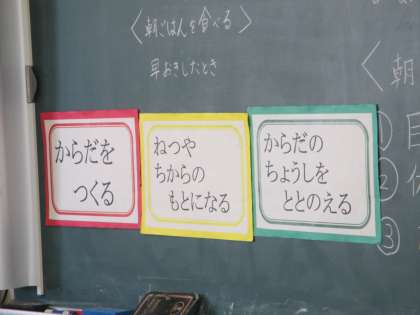 〈朝ごはんを食べる〉
早おきしたとき
からだを
つくる
ねつや
ちからの
もとになる
からだの
ちょうしを
ととのえる
〈朝
①日
②
③